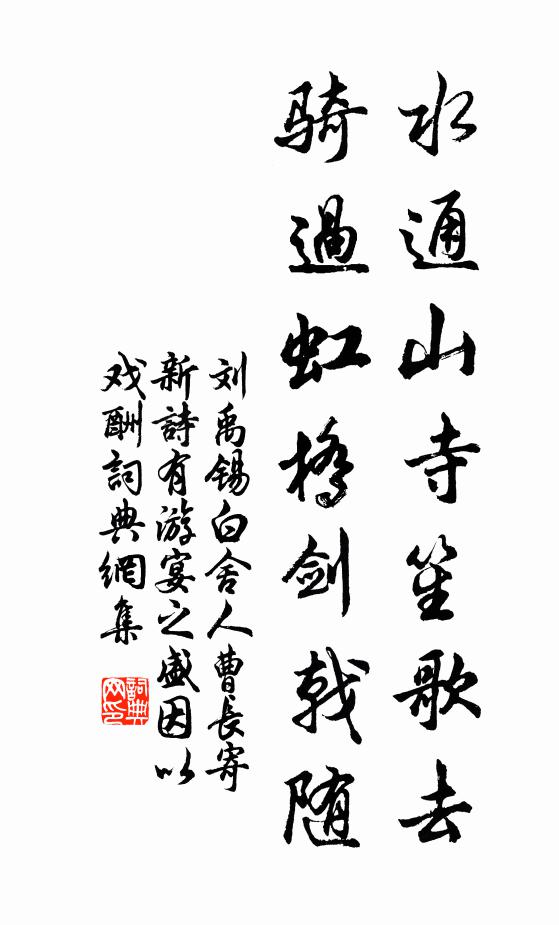 水通山寺笙歌去
骑過虹橋剑戟随
刘禹锡白舍人曹長寄
新詩有游宴之盛因以
戏酬詞典網集
詞典
网印